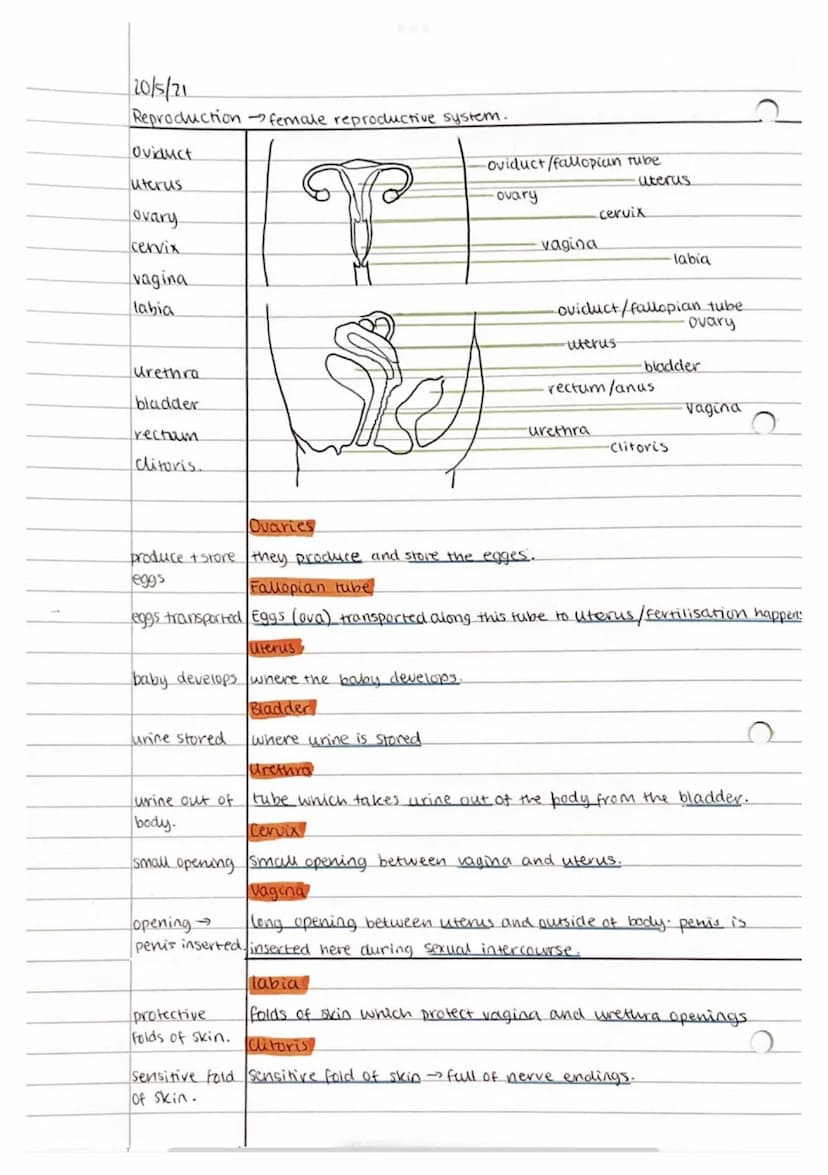 20/5/21
Reproduction → female reproductive system.
oviduct
uterus
ovary
cervix
vagina
labia
urethra
bladder
rectum
clitoris.
oviduct/fallopian tube
uterus
ovary
cervix
vagina
labia
oviduct/fallopian tube
ovary
uterus
bladder
rectum/anus
vagina
urethra
clitoris
Ovaries
produce + store they produce and store the egges.
eggs
Fallopian tube
eggs transported Eggs (ova) transported along this tube to uterus/fertilisation happens
uterus
baby develops where the baby develops.
Bladder
urine stored where urine is stored
Urethra
urine out of tube which takes urine out of the body from the bladder.
body.
Cervix
small opening small opening between vagina and uterus.
Vagina
opening → long opening between uterus and outside of body. penis is
penis inserted. inserted here during sexual intercourse.
labia
protective folds of skin which protect vagina and urethra openings
folds of skin.
clitoris
sensitive fold sensitive fold of skin → full of nerve endings.
of skin.